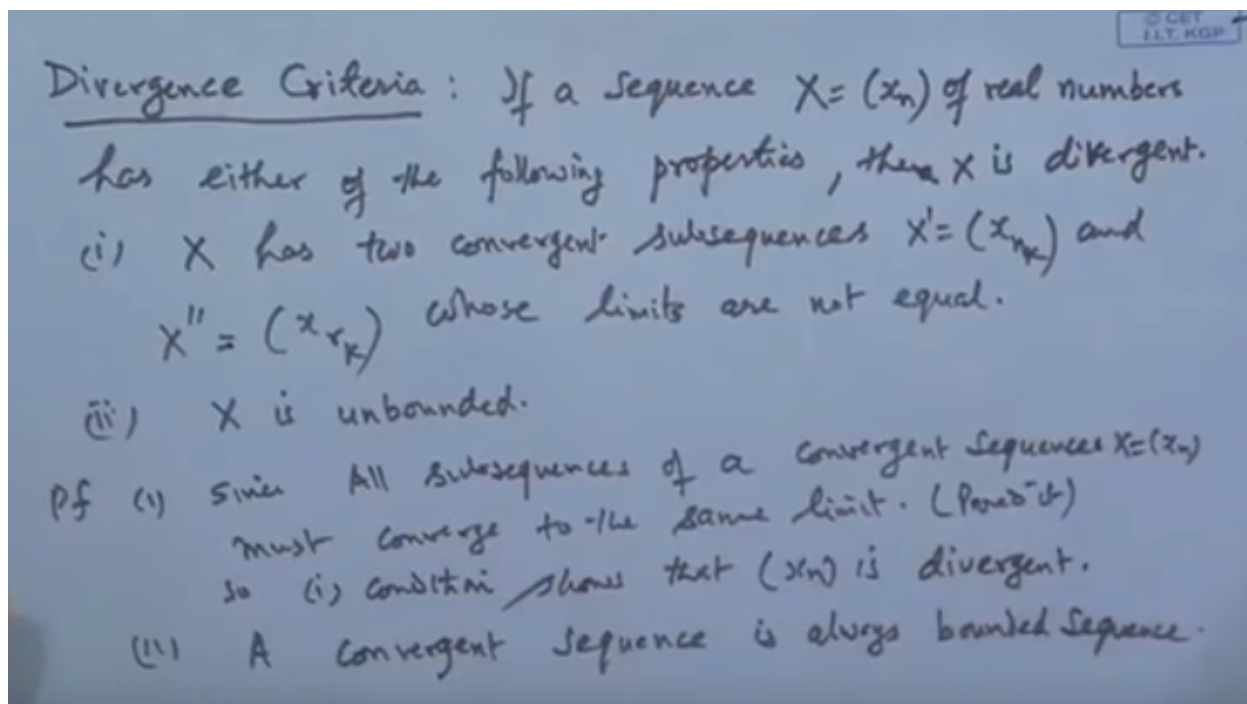 © CET
I.I.T. KGP
Divergence Criteria : If a sequence X = (xₙ) of real numbers
has either of the following properties, then X is divergent.
(i) X has two convergent subsequences X' = (x_{n_k}) and
X'' = (x_{r_k}) whose limits are not equal.
(ii) X is unbounded.
Pf (i) Since All subsequences of a convergent sequences X=(xₙ)
must converge to the same limit. (
so (i) condition shows that (xₙ) is divergent.
(ii) A convergent sequence is always bounded sequence.